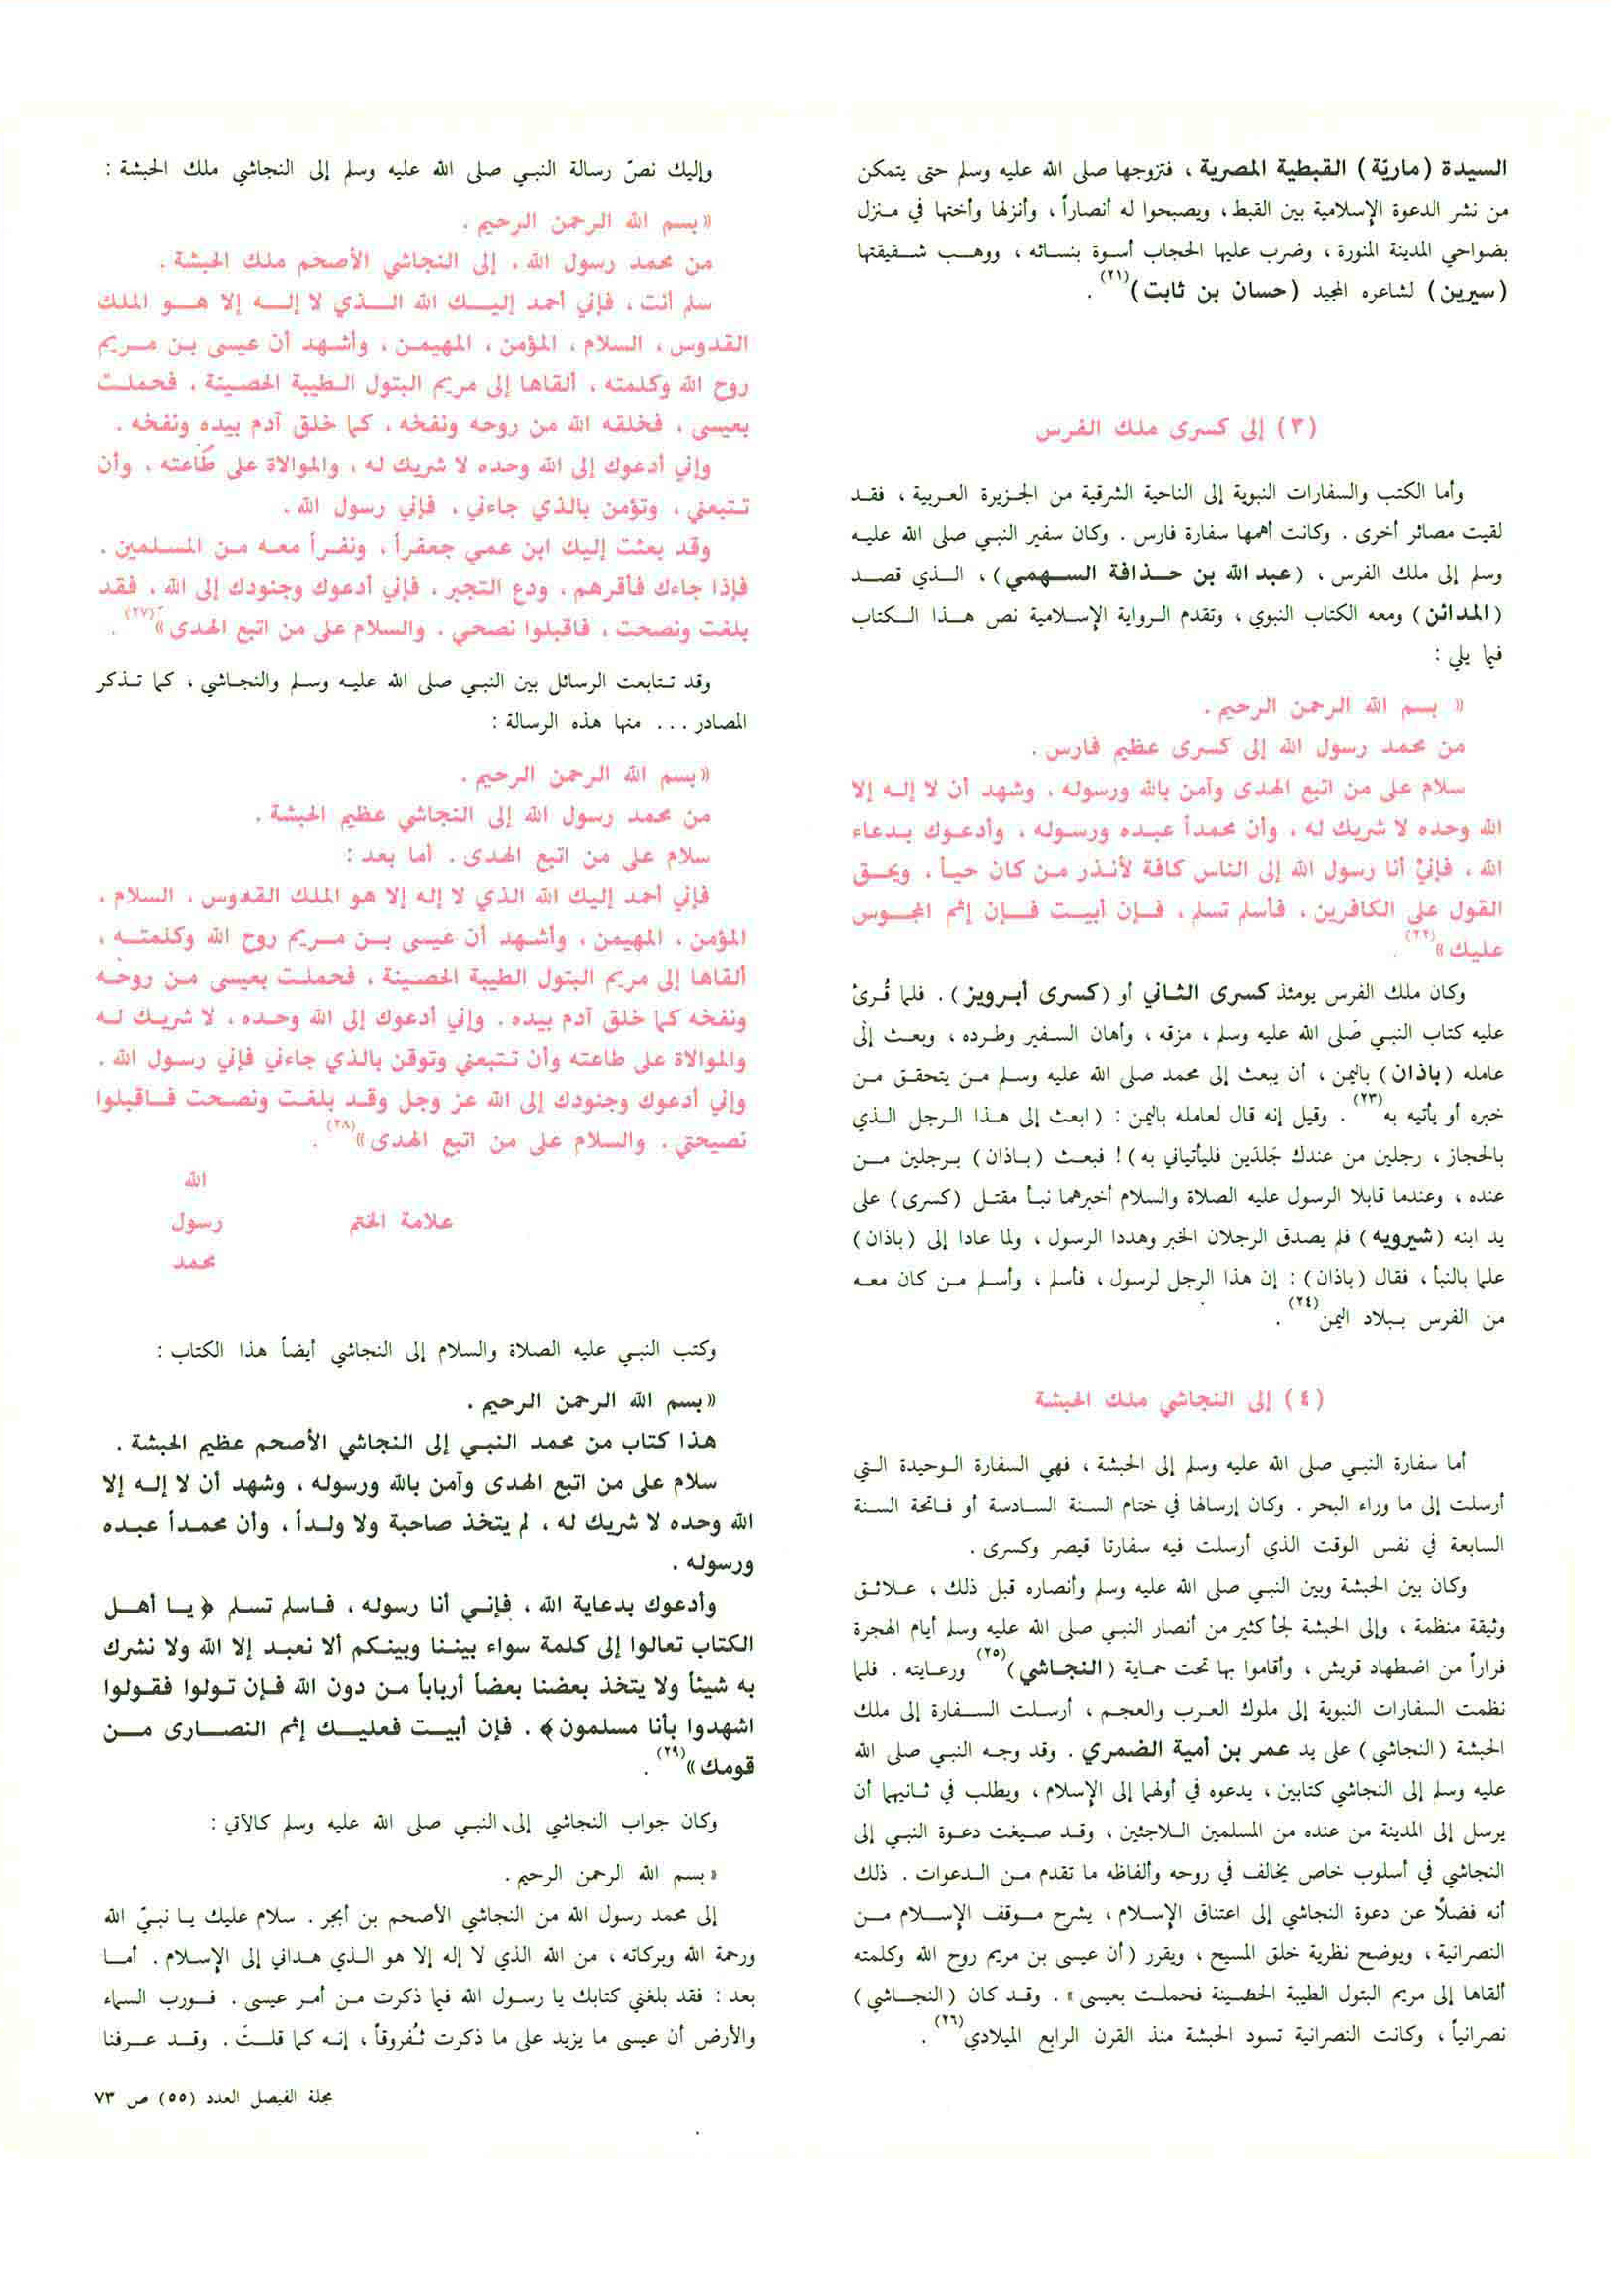 السيدة (ماريّة) القبطية المصرية ، فتزوجها صلى الله عليه وسلم حتى يتمكن
من نشر الدعوة الإسلامية بين القبط ، ويصبحوا له أنصاراً ، وأنزلها وأختها في منزل
بضواحي المدينة المنورة ، وضرب عليها الحجاب أسوة بنسائه ، ووهب شقيقتها
(سيرين) لشاعره المجيد (حسان بن ثابت)(٢١) .
(٣) إلى كسرى ملك الفرس
وأما الكتب والسفارات النبوية إلى الناحية الشرقية من الجزيرة العربية ، فقد
لقيت مصائر أخرى . وكانت أهمها سفارة فارس . وكان سفير النبي صلى الله عليه
وسلم إلى ملك الفرس ، (عبد الله بن حذافة السهمي) ، الذي قصد
(المدائن) ومعه الكتاب النبوي ، وتقدم الرواية الإسلامية نص هذا الكتاب
فيما يلي :
« بسم الله الرحمن الرحيم .
من محمد رسول الله إلى كسرى عظيم فارس .
سلام على من اتبع الهدى وآمن بالله ورسوله ، وشهد أن لا إله إلا
الله وحده لا شريك له ، وأن محمداً عبده ورسوله ، وأدعوك بدعاء
الله ، فإني أنا رسول الله إلى الناس كافة لأنذر من كان حياً ، ويحق
القول على الكافرين ، فأسلم تسلم ، فإن أبيت فإن إثم المجوس
عليك»(٢٢) .
وكان ملك الفرس يومئذ كسرى الثاني أو (كسرى أبرويز) . فلما قُرئ
عليه كتاب النبي صلى الله عليه وسلم ، مزقه ، وأهان السفير وطرده ، وبعث إلى
عامله (باذان) باليمن ، أن يبعث إلى محمد صلى الله عليه وسلم من يتحقق من
خبره أو يأتيه به(٢٣) . وقيل إنه قال لعامله باليمن : (ابعث إلى هذا الرجل الذي
بالحجاز ، رجلين من عندك جَلدَين فليأتياني به)! فبعث (باذان) برجلين من
عنده ، وعندما قابلا الرسول عليه الصلاة والسلام أخبرهما نبأ مقتل (كسرى) على
يد ابنه (شيرويه) فلم يصدق الرجلان الخبر وهددا الرسول ، ولما عادا إلى (باذان)
علما بالنبأ ، فقال (باذان) : إن هذا الرجل لرسول ، فأسلم ، وأسلم من كان معه
من الفرس ببلاد اليمن(٢٤) .
(٤) إلى النجاشي ملك الحبشة
أما سفارة النبي صلى الله عليه وسلم إلى الحبشة ، فهي السفارة الوحيدة التي
أرسلت إلى ما وراء البحر . وكان إرسالها في ختام السنة السادسة أو فاتحة السنة
السابعة في نفس الوقت الذي أرسلت فيه سفارتا قيصر وكسرى .
وكان بين الحبشة وبين النبي صلى الله عليه وسلم وأنصاره قبل ذلك ، علائق
وثيقة منظمة ، وإلى الحبشة لجأ كثير من أنصار النبي صلى الله عليه وسلم أيام الهجرة
فراراً من اضطهاد قريش ، وأقاموا بها تحت حماية (النجاشي)(٢٥) ورعايته . فلما
نظمت السفارات النبوية إلى ملوك العرب والعجم ، أرسلت السفارة إلى ملك
الحبشة (النجاشي) على يد عمر بن أمية الضمري . وقد وجه النبي صلى الله
عليه وسلم إلى النجاشي كتابين ، يدعوه في أولهما إلى الإسلام ، ويطلب في ثانيهما أن
يرسل إلى المدينة من عنده من المسلمين اللاجئين ، وقد صيغت دعوة النبي إلى
النجاشي في أسلوب خاص يخالف في روحه وألفاظه ما تقدم من الدعوات . ذلك
أنه فضلاً عن دعوة النجاشي إلى اعتناق الإسلام ، يشرح موقف الإسلام من
النصرانية ، ويوضح نظرية خلق المسيح ، ويقرر (أن عيسى بن مريم روح الله وكلمته
ألقاها إلى مريم البتول الطيبة الحصينة فحملت بعيسى» . وقد كان (النجاشي)
نصرانياً ، وكانت النصرانية تسود الحبشة منذ القرن الرابع الميلادي(٢٦) .
وإليك نصّ رسالة النبي صلى الله عليه وسلم إلى النجاشي ملك الحبشة :
«بسم الله الرحمن الرحيم .
من محمد رسول الله ، إلى النجاشي الأصحم ملك الحبشة .
سلم أنت ، فإني أحمد إليك الله الذي لا إله إلا هو الملك
القدوس ، السلام ، المؤمن ، المهيمن ، وأشهد أن عيسى بن مريم
روح الله وكلمته ، ألقاها إلى مريم البتول الطيبة الحصينة ، فحملت
بعيسى ، فخلقه الله من روحه ونفخه ، كما خلق آدم بيده ونفخه .
وإني أدعوك إلى الله وحده لا شريك له ، والموالاة على طاعته ، وأن
تتبعني ، وتؤمن بالذي جاءني ، فإني رسول الله .
وقد بعثت إليك ابن عمي جعفراً ، ونفراً معه من المسلمين .
فإذا جاءك فأقرهم ، ودع التجبر ، فإني أدعوك وجنودك إلى الله ، فقد
بلغت ونصحت ، فاقبلوا نصحي . والسلام على من اتبع الهدى»(٢٧) .
وقد تتابعت الرسائل بين النبي صلى الله عليه وسلم والنجاشي ، كما تذكر
المصادر ... منها هذه الرسالة :
«بسم الله الرحمن الرحيم .
من محمد رسول الله إلى النجاشي عظيم الحبشة .
سلام على من اتبع الهدى . أما بعد :
فإني أحمد إليك الله الذي لا إله إلا هو الملك القدوس ، السلام ،
المؤمن ، المهيمن ، وأشهد أن عيسى بن مريم روح الله وكلمته ،
ألقاها إلى مريم البتول الطيبة الحصينة ، فحملت بعيسى من روحه
ونفخه كما خلق آدم بيده . وإني أدعوك إلى الله وحده ، لا شريك له
والموالاة على طاعته وأن تتبعني وتوقن بالذي جاءني فإني رسول الله .
وإني أدعوك وجنودك إلى الله عز وجل وقد بلغت ونصحت فاقبلوا
نصيحتي . والسلام على من اتبع الهدى»(٢٨) .
الله
علامة الختم رسول
محمد
وكتب النبي عليه الصلاة والسلام إلى النجاشي أيضاً هذا الكتاب :
«بسم الله الرحمن الرحيم .
هذا كتاب من محمد النبي إلى النجاشي الأصحم عظيم الحبشة .
سلام على من اتبع الهدى وآمن بالله ورسوله ، وشهد أن لا إله إلا
الله وحده لا شريك له ، لم يتخذ صاحبة ولا ولداً ، وأن محمداً عبده
ورسوله .
وأدعوك بدعاية الله ، فإني أنا رسوله ، فاسلم تسلم ﴿يا أهل
الكتاب تعالوا إلى كلمة سواء بيننا وبينكم ألا نعبد إلا الله ولا نشرك
به شيئاً ولا يتخذ بعضنا بعضاً أرباباً من دون الله فإن تولوا فقولوا
اشهدوا بأنا مسلمون﴾ . فإن أبيت فعليك إثم النصارى من
قومك»(٢٩) .
وكان جواب النجاشي إلى النبي صلى الله عليه وسلم كالآتي :
«بسم الله الرحمن الرحيم .
إلى محمد رسول الله من النجاشي الأصحم بن أبجر . سلام عليك يا نبيّ الله
ورحمة الله وبركاته ، من الله الذي لا إله إلا هو الذي هداني إلى الإسلام . أما
بعد : فقد بلغني كتابك يا رسول الله فيما ذكرت من أمر عيسى . فورب السماء
والأرض أن عيسى ما يزيد على ما ذكرت ثُفروقاً ، إنه كما قلتَ . وقد عرفنا
مجلة الفيصل العدد (٥٥) ص ٧٣